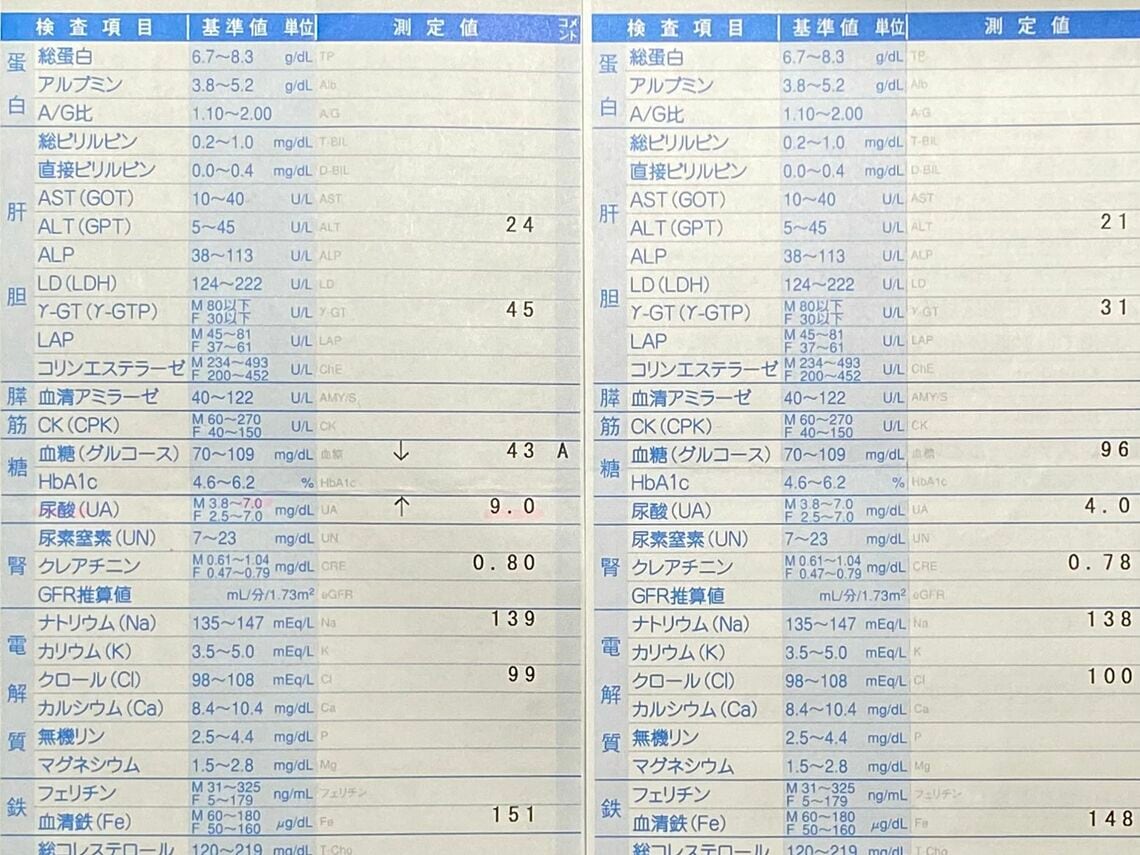 検査項目 基準値 単位 測定値 コメント
蛋白
総蛋白 6.7～8.3 g/dL TP
アルブミン 3.8～5.2 g/dL Alb
A/G比 1.10～2.00 A/G
肝胆
総ビリルビン 0.2～1.0 mg/dL T-BIL
直接ビリルビン 0.0～0.4 mg/dL D-BIL
AST(GOT) 10～40 U/L AST
ALT(GPT) 5～45 U/L ALT 24
ALP 38～113 U/L ALP
LD(LDH) 124～222 U/L LD
γ-GT(γ-GTP) M 80以下 F 30以下 U/L γ-GT 45
LAP M 45～81 F 37～61 U/L LAP
コリンエステラーゼ M 234～493 F 200～452 U/L ChE
膵 血清アミラーゼ 40～122 U/L AMY/S
筋 CK(CPK) M 60～270 F 40～150 U/L CK
糖
血糖(グルコース) 70～109 mg/dL 血糖 ↓ 43 A
HbA1c 4.6～6.2 % HbA1c
腎
尿酸(UA) M 3.8～7.0 F 2.5～7.0 mg/dL UA ↑ 9.0
尿素窒素(UN) 7～23 mg/dL UN
クレアチニン M 0.61～1.04 F 0.47～0.79 mg/dL CRE 0.80
GFR推算値 mL/分/1.73m² eGFR
電解質
ナトリウム(Na) 135～147 mEq/L Na 139
カリウム(K) 3.5～5.0 mEq/L K
クロール(Cl) 98～108 mEq/L Cl 99
カルシウム(Ca) 8.4～10.4 mg/dL Ca
無機リン 2.5～4.4 mg/dL P
マグネシウム 1.5～2.8 mg/dL Mg
鉄
フェリチン M 31～325 F 5～179 ng/mL フェリチン
血清鉄(Fe) M 60～180 F 50～160 μg/dL Fe 151
総コレステロール 120～219 mg/dL T-Cho
検査項目 基準値 単位 測定値
蛋白
総蛋白 6.7～8.3 g/dL TP
アルブミン 3.8～5.2 g/dL Alb
A/G比 1.10～2.00 A/G
肝胆
総ビリルビン 0.2～1.0 mg/dL T-BIL
直接ビリルビン 0.0～0.4 mg/dL D-BIL
AST(GOT) 10～40 U/L AST
ALT(GPT) 5～45 U/L ALT 21
ALP 38～113 U/L ALP
LD(LDH) 124～222 U/L LD
γ-GT(γ-GTP) M 80以下 F 30以下 U/L γ-GT 31
LAP M 45～81 F 37～61 U/L LAP
コリンエステラーゼ M 234～493 F 200～452 U/L ChE
膵 血清アミラーゼ 40～122 U/L AMY/S
筋 CK(CPK) M 60～270 F 40～150 U/L CK
糖
血糖(グルコース) 70～109 mg/dL 血糖 96
HbA1c 4.6～6.2 % HbA1c
腎
尿酸(UA) M 3.8～7.0 F 2.5～7.0 mg/dL UA 4.0
尿素窒素(UN) 7～23 mg/dL UN
クレアチニン M 0.61～1.04 F 0.47～0.79 mg/dL CRE 0.78
GFR推算値 mL/分/1.73m² eGFR
電解質
ナトリウム(Na) 135～147 mEq/L Na 138
カリウム(K) 3.5～5.0 mEq/L K
クロール(Cl) 98～108 mEq/L Cl 100
カルシウム(Ca) 8.4～10.4 mg/dL Ca
無機リン 2.5～4.4 mg/dL P
マグネシウム 1.5～2.8 mg/dL Mg
鉄
フェリチン M 31～325 F 5～179 ng/mL フェリチン
血清鉄(Fe) M 60～180 F 50～160 μg/dL Fe 148
総コレステロール 120～219 mg/dL T-Cho